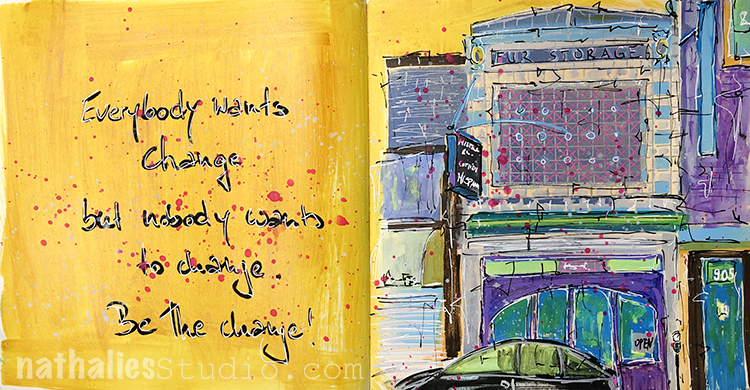 Everybody wants
Change
but nobody wants
to change.
Be the change!
FUR STORAGE
905
OPEN
nathaliesStudio.com